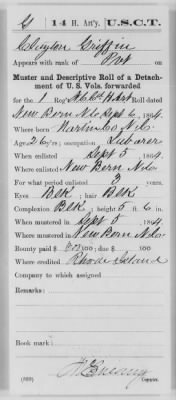 G | 14 H. Art'y. | U.S.C.T.
Clayton Griffin
Appears with rank of Pvt on
Muster and Descriptive Roll of a Detach-
ment of U. S. Vols. forwarded
for the 1 Reg't N.C. Col. H. Art Roll dated
New Bern N.C. Sept 6, 1864.
Where born Martin Co N.C.
Age 26 y'rs; occupation Laborer
When enlisted Sept 5, 1864.
Where enlisted New Bern N.C.
For what period enlisted 3 years.
Eyes Blk; hair Blk
Complexion Blk; height 5 ft. 6 in.
When mustered in Sept 5, 1864.
Where mustered in New Bern N.C.
Bounty paid $ 100; due $ 100
Where credited Rhode Island
Company to which assigned
Remarks:
Book mark:
Copyist.